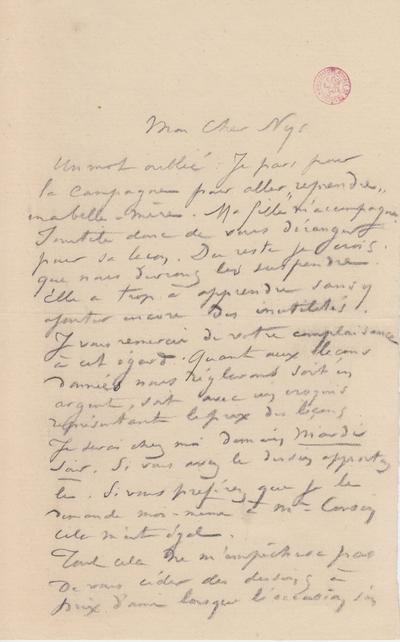 Mon cher Nys
Un mot oublié. Je pars pour
la campagne pour aller "reprendre"
ma belle-mère. Ma fille m'accompagne
Inutile donc de vous déranger
pour sa leçon. Du reste je crois
que nous devrons les suspendre.
Elle a trop à apprendre sans y
ajouter encore des inutilités.
Je vous remercie de votre complaisance
à cet égard. Quant aux leçons
données nous réglerons soit en
argent, soit avec un croquis
représentant le prix des leçons
Je serai chez moi demain Mardi
soir. Si vous avez le dessin apportez
le. Si vous préférez que je le
demande moi-même à Mr
cela m'est égal.
Tout cela ne m'empêchera pas
de vous céder des dessins à
prix d'ami lorsque l'occasion s'en